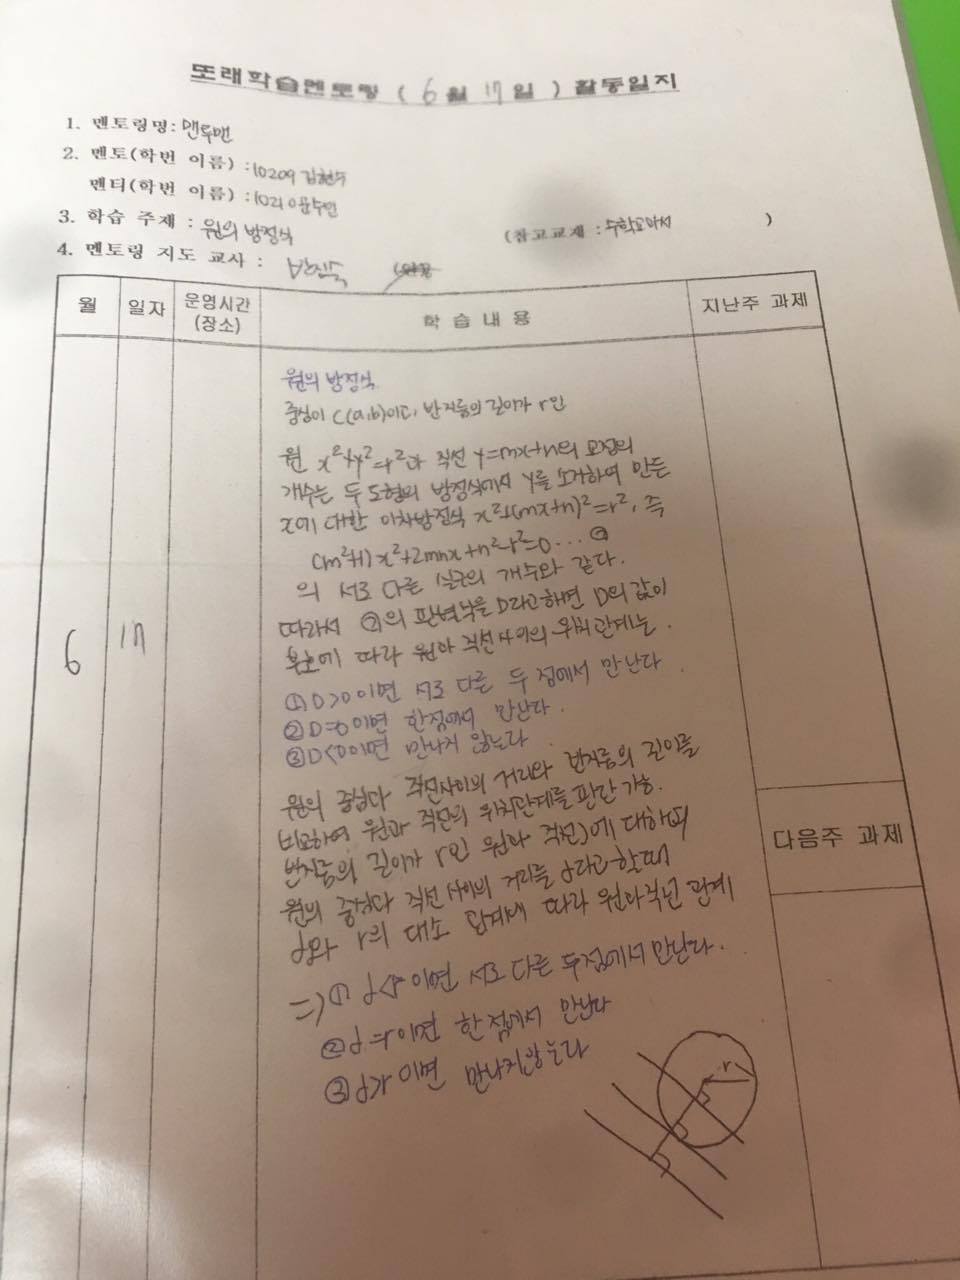 또래학습멘토링 ( 6월 17일 ) 활동일지
1. 멘토링명: 맨투맨
2. 멘토(학번 이름) : 10209 김현수
멘티(학번 이름) : 10210 문수민
3. 학습 주재 : 원의 방정식 (참고교재 : 수학교과서 )
4. 멘토링 지도 교사 :
월 일자 운영시간 (장소) 학 습 내 용 지난주 과제
원의 방정식
중심이 C(a,b)이고, 반지름의 길이가 r인
원 x²+y²=r²과 직선 y=mx+n의 교점의
개수는 두 도형의 방정식에서 y를 소거하여 만든
x에 대한 이차방정식 x²+(mx+n)²=r², 즉
(m²+1)x²+2mnx+n²-r²=0 ... ㉠
의 서로 다른 실근의 개수와 같다.
따라서 ㉠의 판별식을 D라고하면 D의 값이
부호에 따라 원과 직선사이의 위치관계는.
6 17
① D>0이면 서로 다른 두 점에서 만난다.
② D=0이면 한점에서 만난다.
③ D<0이면 만나지 않는다.
원의 중심과 직선사이의 거리와 반지름의 길이를
비교하여 원과 직선의 위치관계를 판단 가능.
다음주 과제
반지름의 길이가 r인 원과 직선)에 대하여
원의 중심과 직선 사이의 거리를 d라고 할때
d와 r의 대소 관계에 따라 원과직선 관계
=) ① d<r이면 서로 다른 두점에서 만난다.
② d=r이면 한 점에서 만난다
③ d>r이면 만나지않는다
r